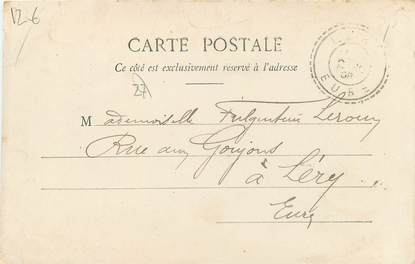 12-6
CARTE POSTALE
Ce côté est exclusivement réservé à l'adresse
27
EURE
Mademoiselle Leroux
Rue aux Goujons
à Léry
Eure